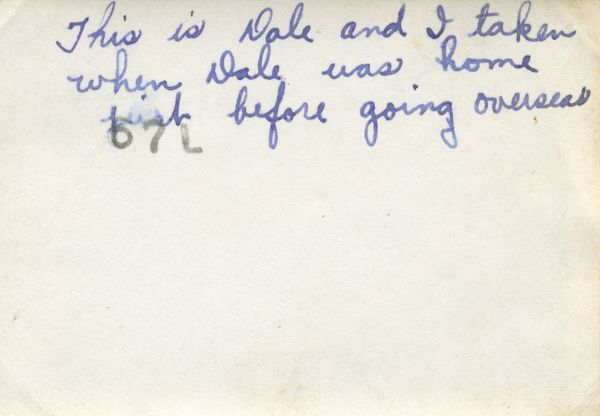 This is Dale and I taken
when Dale was home
just before going overseas
67L